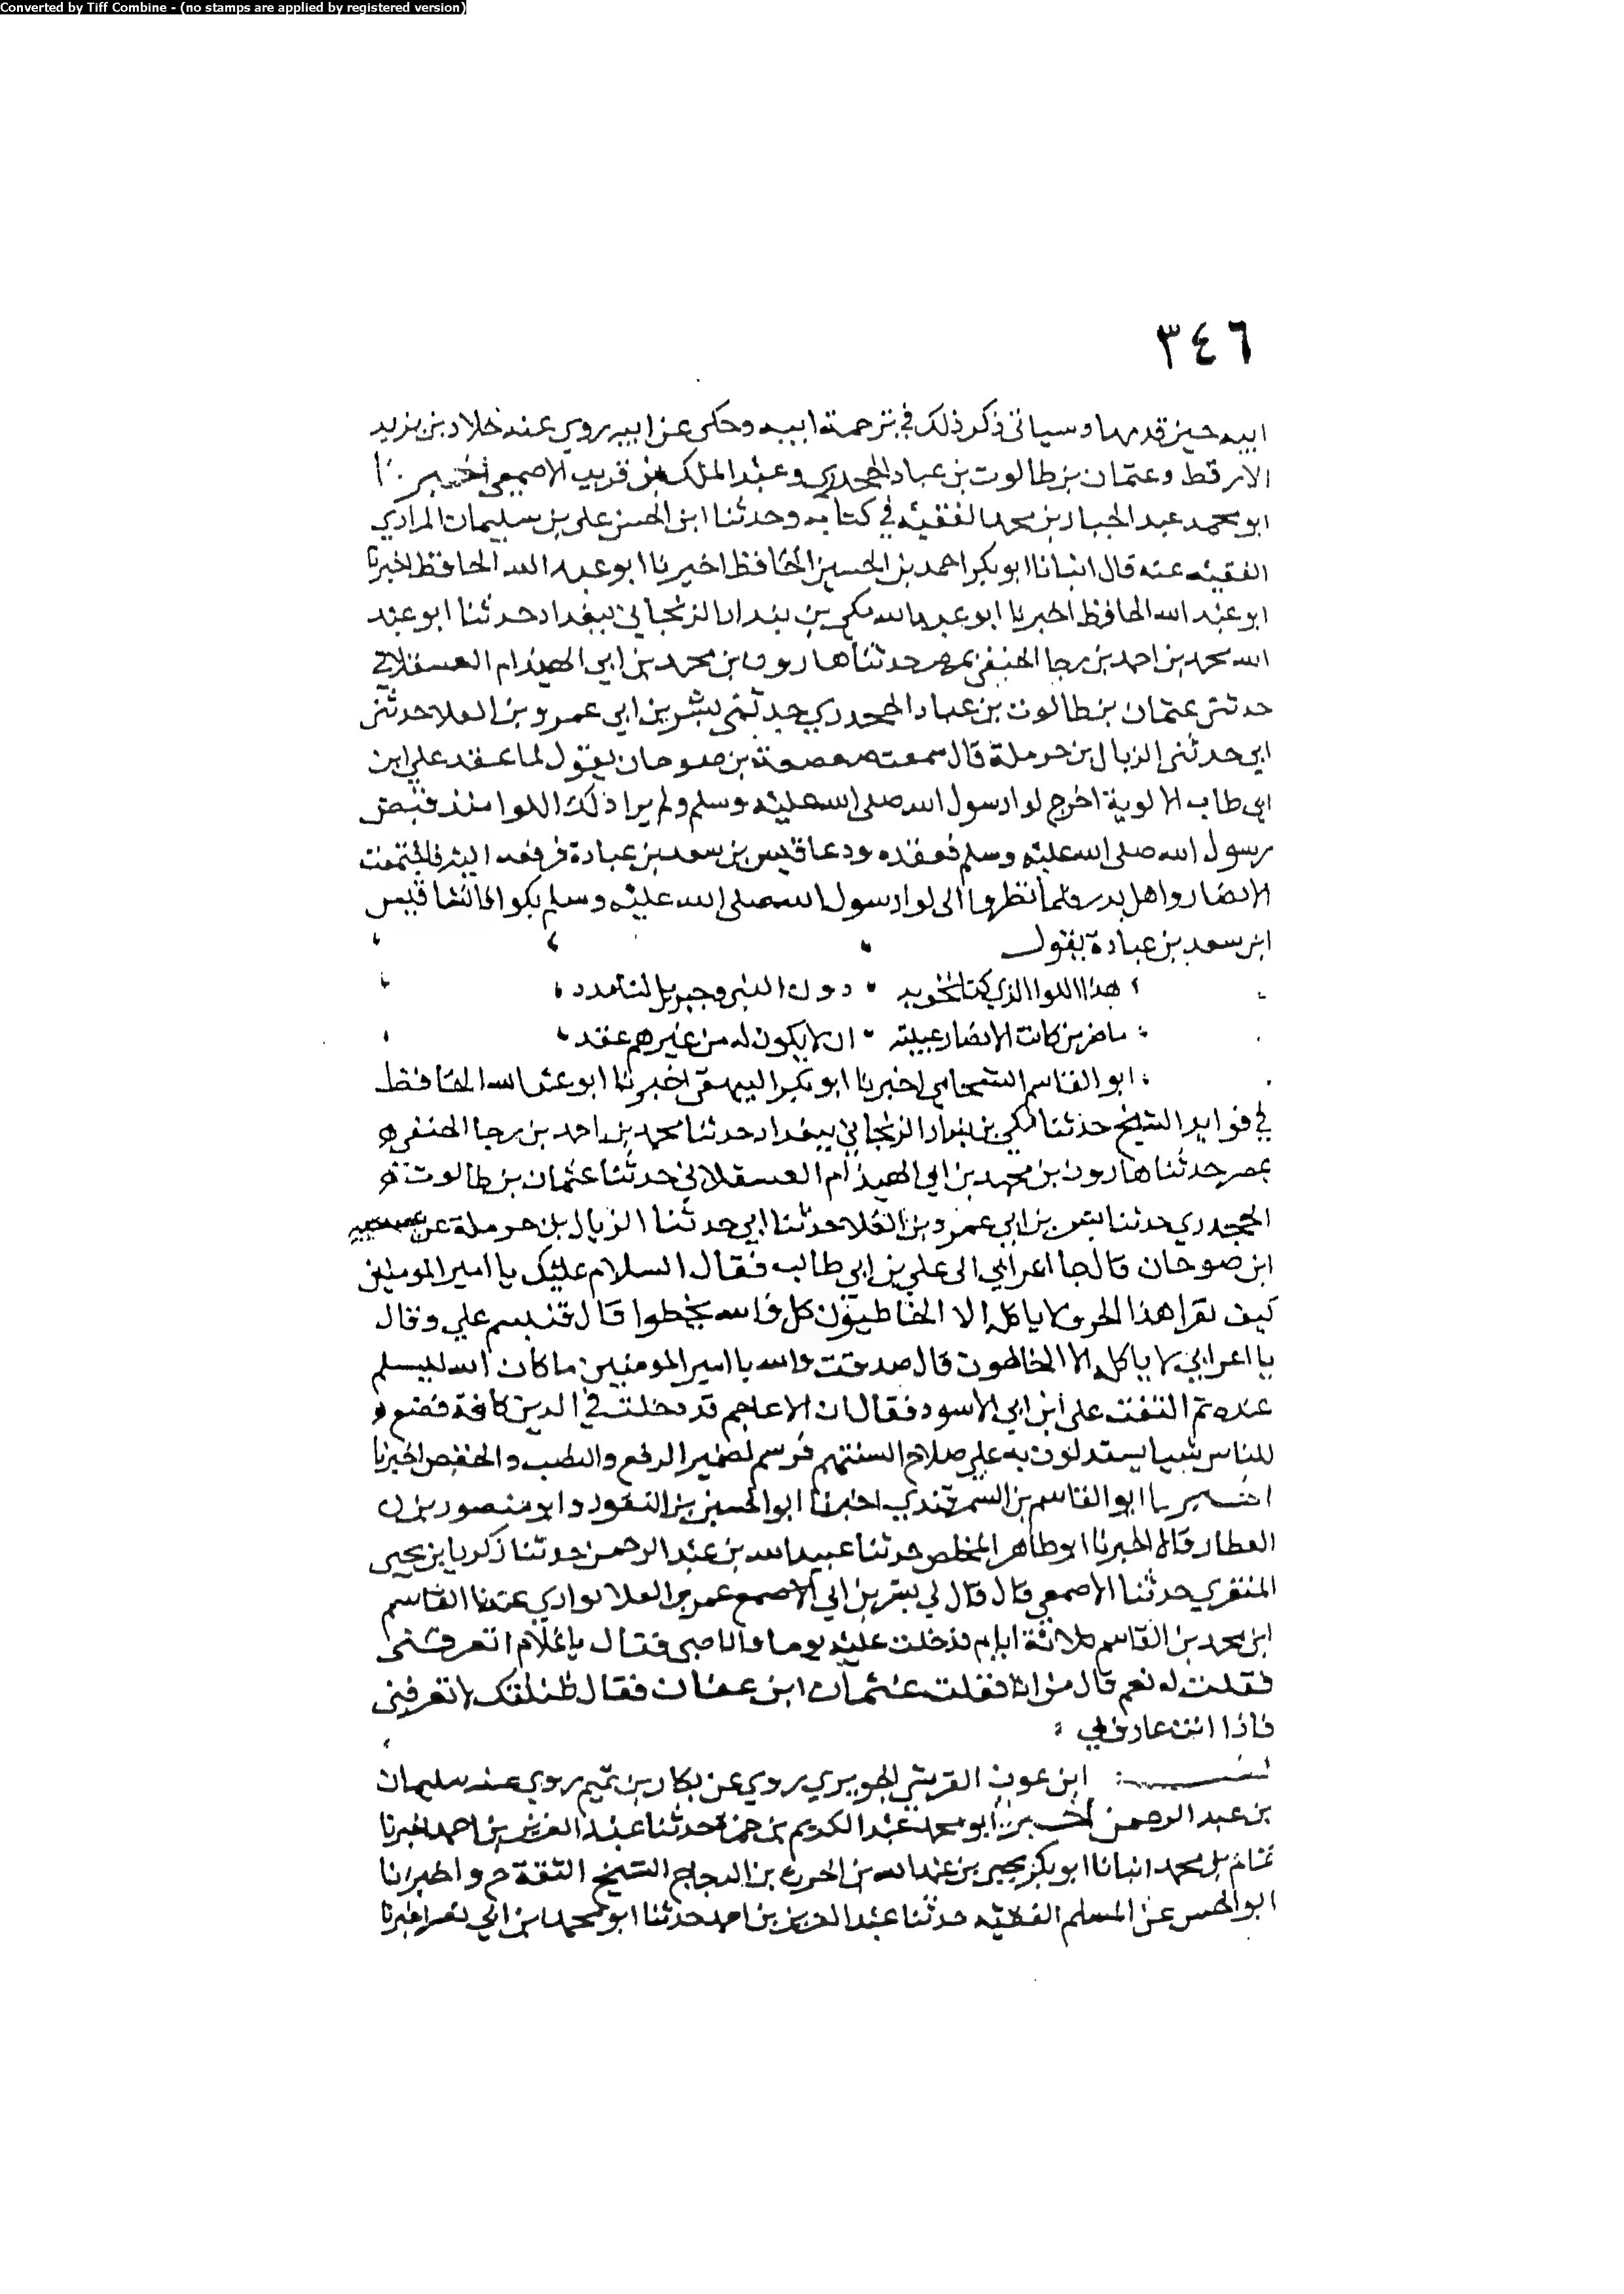 Converted by Tiff Combine - (no stamps are applied by registered version)
٣٤٦
ابيه حين قدمها وسياتي ذكر ذلك في ترجمة ابيه وحكى عن ابيه روي عنه خلاد بن يزيد
الارقط وعثمان بن طالوت بن عباد الجحدري وعبد الملك بن قريب الاصمعي اخبرنا
ابو محمد عبد الجبار بن محمد الفقيه في كتابه وحدثنا ابن الحسن علي بن سليمان المرادي
الفقيه عنه قال انبانا ابو بكر احمد بن الحسين الحافظ اخبرنا ابو عبد الله الحافظ اخبرنا
ابو عبد الله الحافظ اخبرنا ابو عبد الله مكي بن بندار الزنجاني ببغداد حدثنا ابو عبد
الله محمد بن احمد بن رجا الحنفي بمصر حدثنا هارون بن محمد بن ابي الهيذام العسقلاني
حدثني عثمان بن طالوت بن عباد الجحدري حدثني بشر بن ابي عمرو بن العلا حدثني
ابي حدثني الذيال بن حرملة قال سمعت صعصعة بن صوحان يقول لما عقد علي ابن
ابي طالب الالوية اخرج لوا رسول الله صلى الله عليه وسلم ولم يرا ذلك اللوا منذ قبض
رسول الله صلى الله عليه وسلم فعقده ودعا قيس بن سعد بن عبادة فرفعه اليه فاجتمعت
الانصار واهل بدر فلما نظروا الى لوا رسول الله صلى الله عليه وسلم بكوا فانشا قيس
ابن سعد بن عبادة يقول
هذا اللوا الذي كنا نحف به دون النبي وجبريل لنا مدد
ما ضر من كانت الانصار عيبته ان لا يكون له من غيرهم عقد
ابو القاسم الشحامي اخبرنا ابو بكر البيهقي اخبرنا ابو عبد الله الحافظ
في فوايد الشيخ حدثنا مكي بن بندار الزنجاني ببغداد حدثنا محمد بن احمد بن رجا الحنفي
بمصر حدثنا هارون بن محمد بن ابي الهيذام العسقلاني حدثنا عثمان بن طالوت
الجحدري حدثنا بشر بن ابي عمرو بن العلا حدثنا ابي حدثنا الذيال بن حرملة عن
ابن صوحان قال جا اعرابي الى علي بن ابي طالب فقال السلام عليك يا امير المومنين
كيف تقرا هذا الحرف لا ياكله الا الخاطيون كل والله يخطوا قال فتبسم علي وقال
يا اعرابي لا ياكله الا الخاطون قال صدقت والله يا امير المومنين ما كان الله ليسلم
عبده ثم التفت على ابن ابي الاسود فقال ان الاعاجم قد دخلت في الدين كافة فضع
للناس شيا يستدلون به على صلاح السنتهم فرسم لضمير الرفع والنصب والخفض اخبرنا
اخبرنا ابو القاسم بن السمرقندي اخبرنا ابو الحسين بن النقور وابو منصور بن
العطار قالا اخبرنا ابو طاهر المخلص حدثنا عبيد الله بن عبد الرحمن حدثنا زكريا بن يحيى
المنقري حدثنا الاصمعي قال قال لي بشر بن ابي الاصمع عمرو بن العلا عندنا القاسم
ابن محمد بن القاسم ثلاثة ايام فدخلت عليه يوما وانا صبي فقال يا غلام اتعرفني
فقلت له نعم قال من انا فقلت عثمان ابن عفان فقال ظننتك لا تعرفني
فاذا انت عارف بي
ابن عون القرشي الجوبري روي عن بكار بن تميم روي عنه سليمان
بن عبد الرحمن اخبرنا ابو محمد عبد الكريم بن حمزة حدثنا عبد العزيز بن احمد اخبرنا
تمام بن محمد انبانا ابو بكر يحيى بن عبد الله بن الحرث بن الزجاج الشيخ الثقة ح واخبرنا
ابو الحسن عن المسلم الفقيه حدثنا عبد العزيز بن احمد حدثنا ابو محمد بن ابي نصر اخبرنا